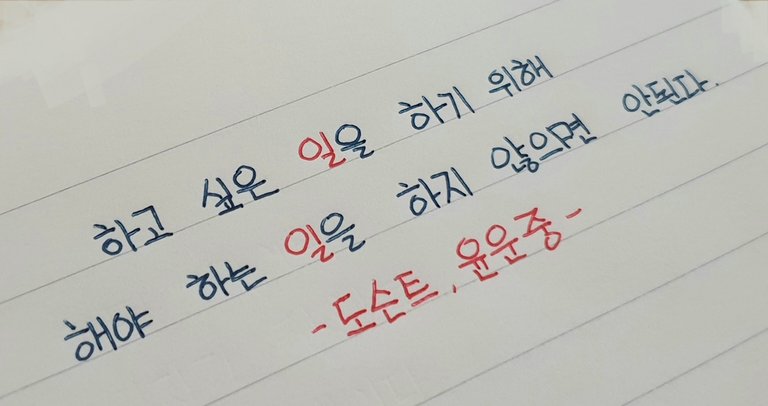 하고 싶은 일을 하기 위해
해야 하는 일을 하지 않으면 안된다.
- 도슨트, 윤운중 -